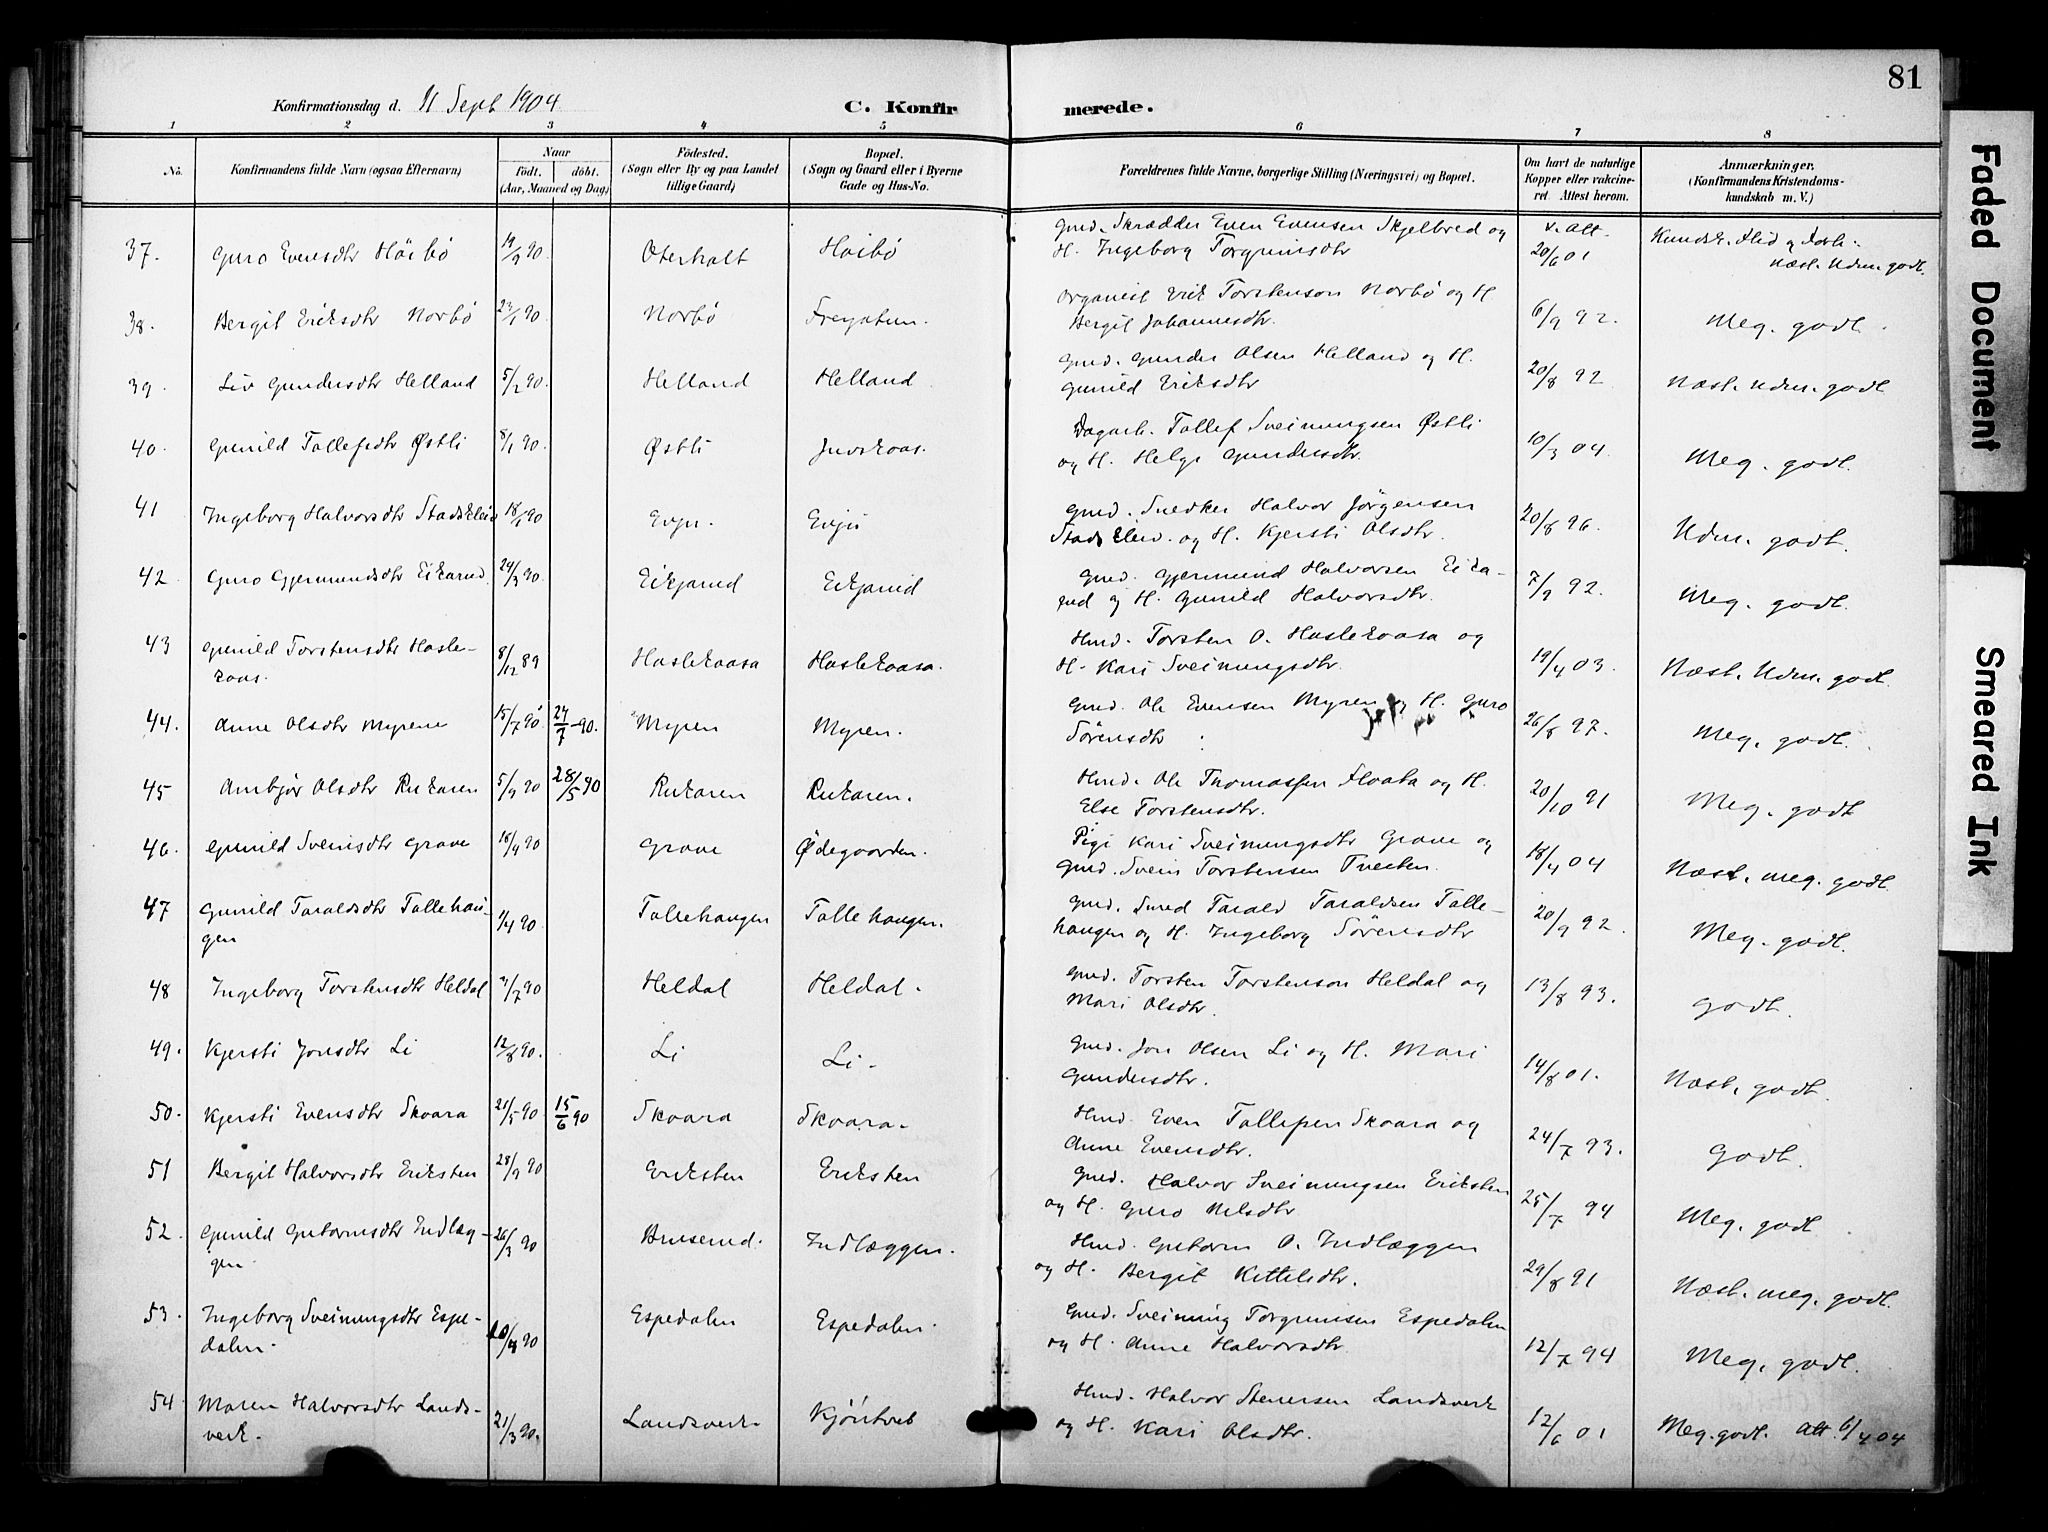 81
Konfirmationsdag d. 11 Sept 1904
C. Konfirmerede.
1 2 3 4 5 6 7 8
No. Konfirmandens fulde Navn (ogsaa Efternavn) Naar født. døbt. (Aar, Maaned og Dag) Fødested. (Sogn eller By og paa Landet tillige Gaard) Bopæl. (Sogn og Gaard eller i Byerne Gade og Hus-No. Forældrenes fulde Navne, borgerlige Stilling (Næringsvei) og Bopæl. Om havt de naturlige Kopper eller vakcineret. Attest herom. Anmærkninger. (Konfirmandens Kristendomskundskab m. V.)
37. Guro Evensdtr Höibö 19/9 90. Oterholt Höibö Gmd. Skrædder Even Evensen Skjelbred og
H. Ingeborg Torgrimsdtr v. Att. 20/6 01 Kundsk. Flid og Forh.
Næst. Udm. godt.
38. Bergit Eriksdtr Norbø 23/1 90 Norbø Organist Erik Torstenson Norbø og H.
Bergit Johannesdtr. 6/9 92. Meg. godt.
39. Liv Gundersdtr Helland 5/2 90 Helland Helland Gmd. Gunder Olsen Helland og H.
Gunild Eriksdtr 20/8 92 Næst. Udm. godt
40. Gunild Tallefsdtr Østli 8/1 90. Østli Juvskaas. Dagarb. Tallef Sveinungsen Østli
og H. Helge Gundersdtr. 10/3 04. Meg. godt.
41 Ingeborg Halvorsdtr Stadskleiv 18/1 90 Evju. Evju Gmd. Snedker Halvor Jörgensen
Stadskleiv. og H. Kjersti Olsdtr. 20/8 96. Udm. godt.
42. Guro Gjermundsdtr Eikarud. 24/3 90. Eikjarud Eikjarud Gmd. Gjermund Halvorsen Eika-
rud og H. Gunild Halvorsdtr. 7/9 92. Meg. godt.
43 Gunild Torstensdtr Hasle-
kaas. 8/12 89 Haslekaasa Haslekaasa. Hmd. Torsten O. Haslekaasa og
H. Kari Sveinungsdtr. 19/4 03. Næst. Udm. godt.
44. Anne Olsdtr Myrene 15/7 90 27/7 90. Myren Myren. Gmd. Ole Evensen Myren og H. Guro
Sörensdtr 26/8 97. Meg. godt.
45 Ambjør Olsdtr Rukaren 5/9 90 28/5 90 Rukaren Rukaren. Hmd. Ole Thomassen Floata og H.
Else Torstensdtr. 20/10 91 Meg. godt
46. Gunild Sveinsdtr Grave 16/9 90 Grave Ødegaarden. Pige Kari Sveinungsdtr Grave og
Gmd. Svein Torstensen Tveiten. 18/4 04 Næst. meg. godt.
47 Gunild Taraldsdtr Tallehau-
gen 1/4 90 Tallehaugen Tallehaugen. Gmd. Smed Tarald Taraldsen Talle-
haugen og H. Ingeborg Sörensdtr 20/9 92. Meg. godt.
48 Ingeborg Torstensdtr Heldal 90 Heldal Heldal. Gmd. Torsten Torstenson Heldal og
Mari Olsdtr. 13/8 93. Godt.
49. Kjersti Jonsdtr Li 12/8 90. Li Li. Gmd. Jon Olsen Li og H. Mari
Gundersdtr. 14/8 01. Næst. godt.
50. Kjersti Evensdtr Skoara 21/5 90 15/6 90 Skoara Skoara. Hmd. Even Tallefsen Skoara og
Anne Evensdtr. 24/7 93. Godt.
51 Bergit Halvorsdtr Eriksten 28/9 90 Eriksten Eriksten Gmd. Halvor Sveinungsen Eriksten
og H. Guro Nilsdtr 25/7 94 Meg. godt.
52. Gunild Gutormsdtr Indlæg-
gen. 26/3 90 Indlæggen. Hmd. Gutorm O. Indlæggen
og H. Bergit Kittilsdtr. 29/8 91 Næst. meg. godt.
53. Ingeborg Sveinungsdtr Espe-
dalen. 90 Espedalen Espedalen. Gmd. Sveinung Torgrimsen Espedalen
og H. Anne Halvorsdtr. 12/7 94 Meg. godt.
54. Maren Halvorsdtr Lands-
verk. 21/3 90. Landsverk. Kjöntveb Hmd. Halvor Stenersen Landsverk
og H. Kari Olsdtr. 12/6 01 Meg. godt. Att. 6/4 04
Faded Document
Smeared Ink